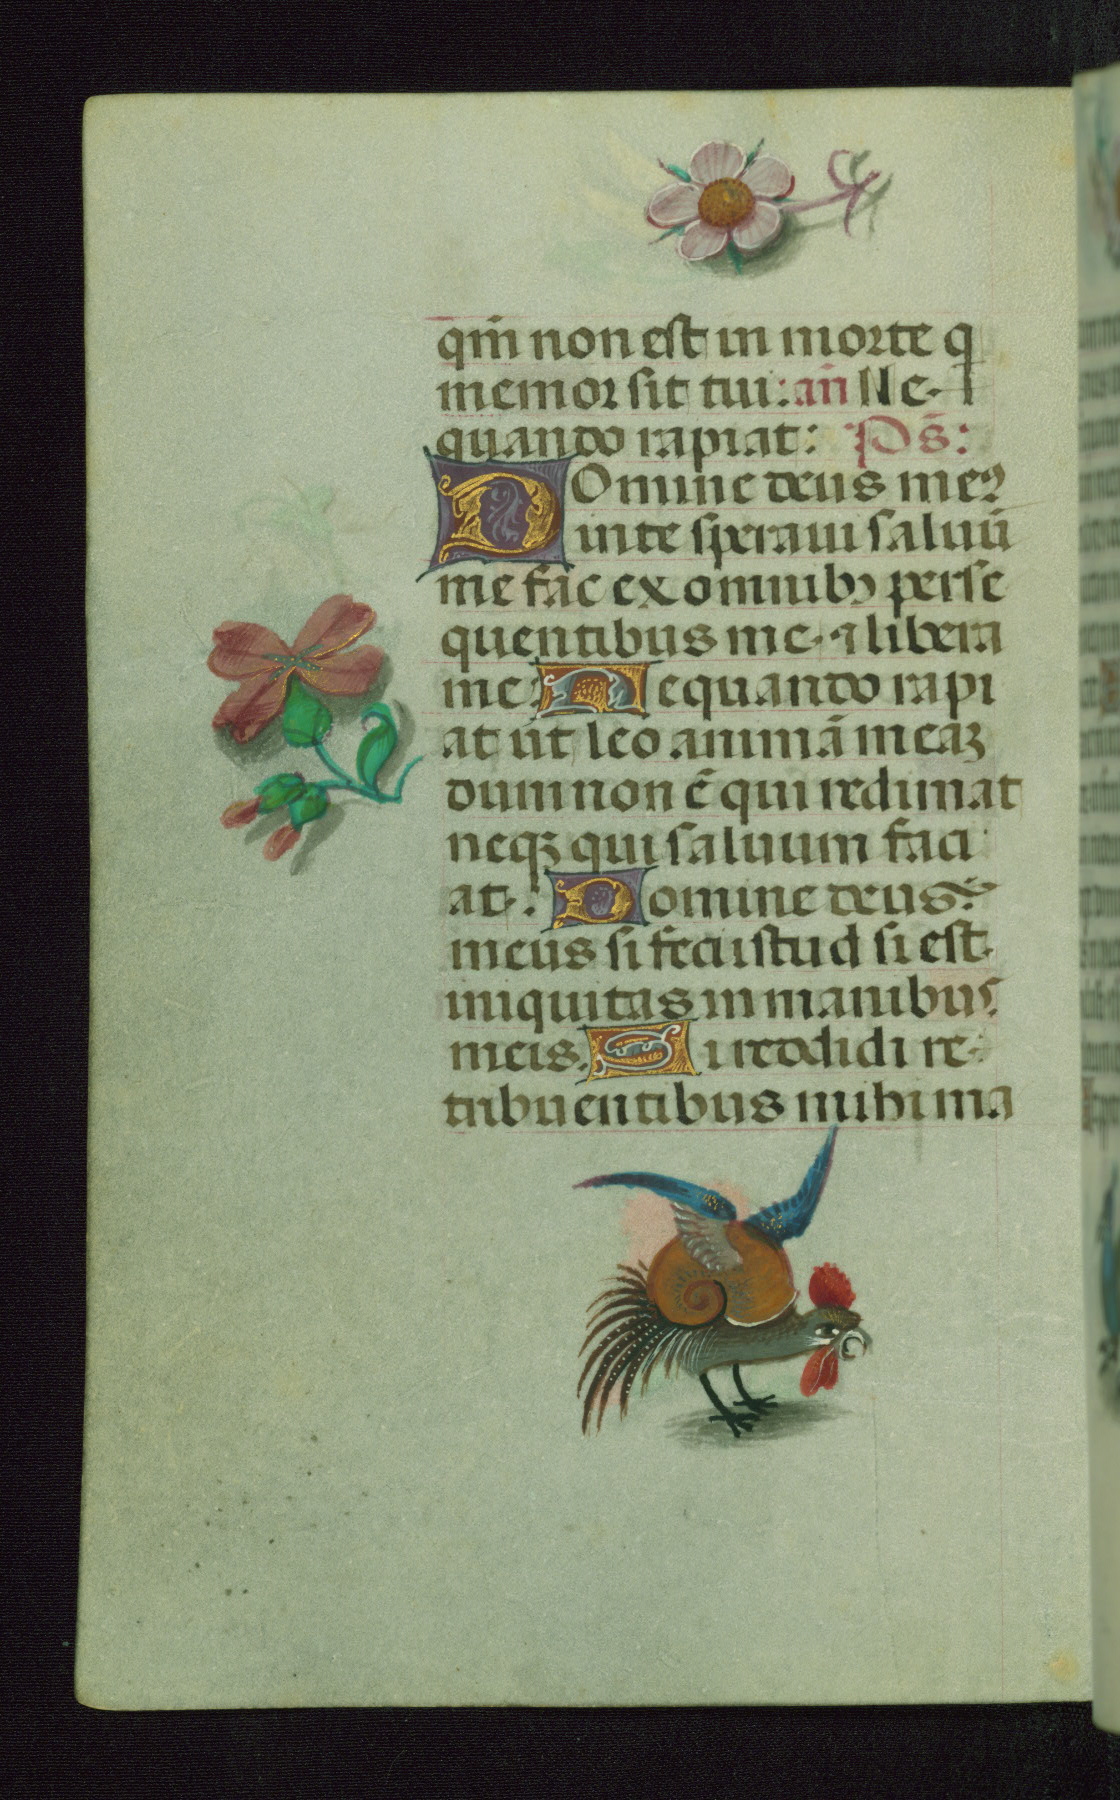 qm̄ non est in morte q
memor sit tui: an̄ Ne
quando rapiat: Ps̄:
Domine deus meꝰ
in te speraui saluū
me fac ex omnibꝫ perse
quentibus me ⁊ libera
me: Nequando rapi
at ut leo animā meaꝫ
dum non ē qui redimat
neqꝫ qui saluum faci
at: Domine deus
meus si feci istud si est
iniquitas in manibus
meis. Si reddidi re
tribuentibus mihi ma